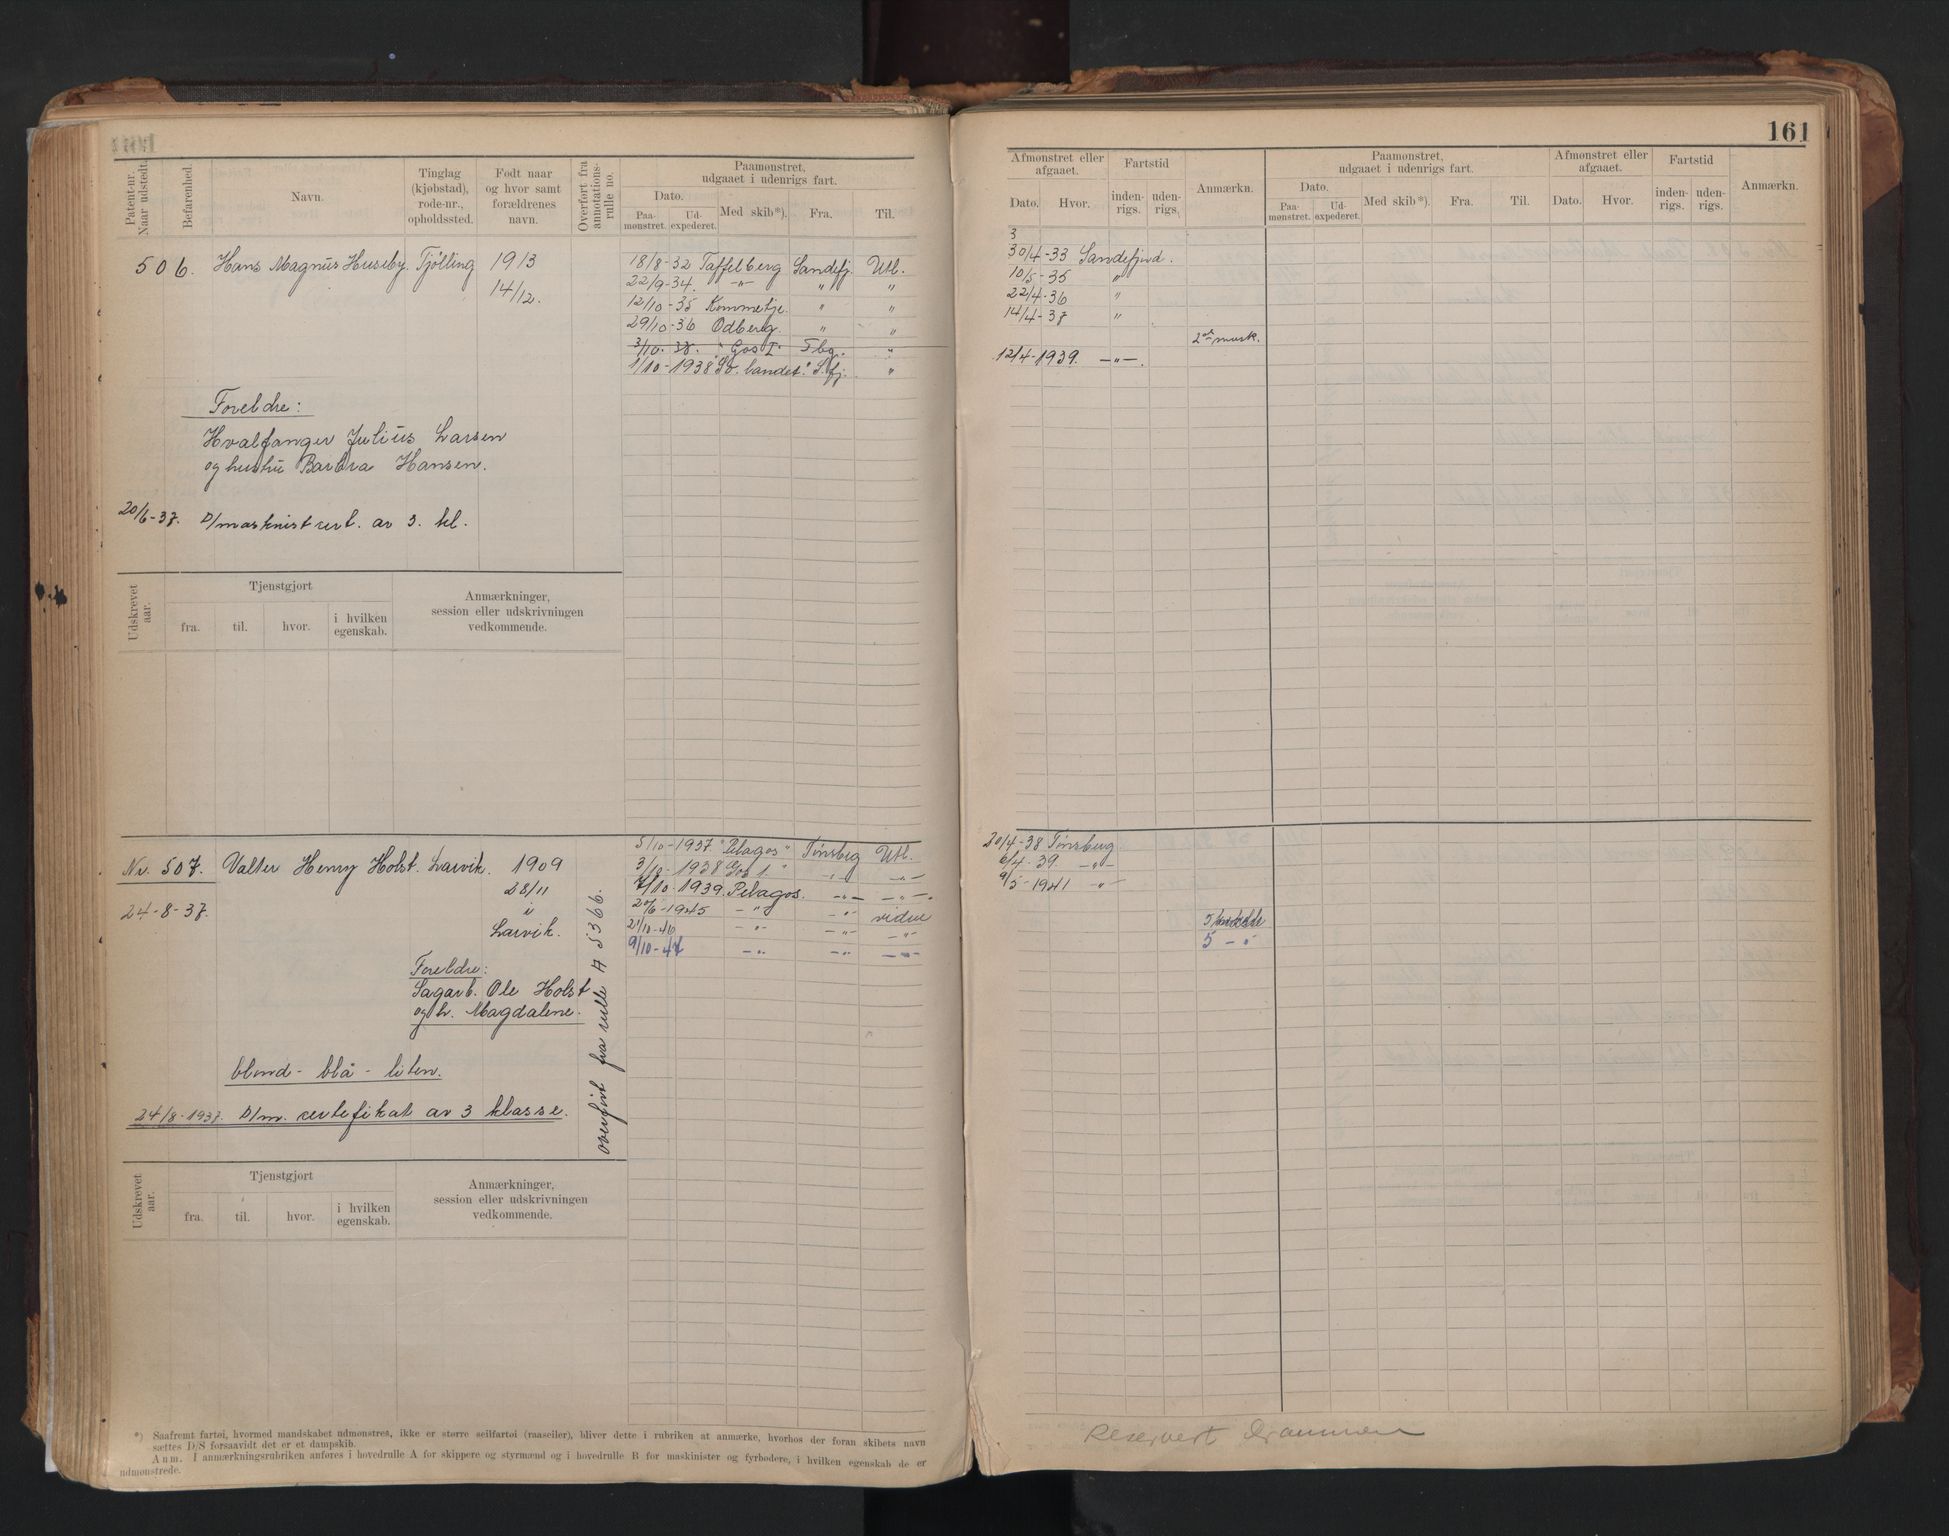 161
Patent-nr. Naar udstedt.
Befarenhed.
Navn.
Tinglag (kjøbstad), rode-nr., opholdssted.
Født naar og hvor samt forældrenes navn.
Overført fra annotations-rulle no.
Paamønstret, udgaaet i udenrigs fart.
Dato.
Paa-mønstret.
Ud-expederet.
Med skib*).
Fra.
Til.
506. Hans Magnus Huseby. Tjølling 1913
14/12.
18/8-32 Taffelberg Sandefj. Utl.
22/9-34. -"- " "
12/10-35 Kommetje. " "
29/10-36 Odberg. " "
3/10-38. "Gos I" Tbg. "
1/10-1938 "Sv. landet." S.fj. "
Foreldre:
Hvalfanger Julius Larsen
og hustru Barbra Hansen.
20/6-37. D/maskinistcert. av 3. kl.
Udskrevet aar.
Tjenstgjort
fra.
til.
hvor.
i hvilken egenskab.
Anmærkninger, session eller udskrivningen vedkommende.
Nr. 507. Valter Henry Holst. Larvik. 1909
28/11
24-8-37. i
Larvik.
5/10-1937. "Pelagos" Tønsberg Utl.
3/10-1938 Gos 1. " -"-
7/10-1939. Pelagos. -"- -"-
20/6-1945 -"- -"- videre
21/10-46 -"- -"- -"-
9/10-47 -"- -"- -"-
Foreldre:
Sagarb. Ole Holst
og h. Magdalene.
overført fra rulle A 5366.
blond - blå - liten.
24/8-1937. D/m. certefikat av 3 klasse.
Udskrevet aar.
Tjenstgjort
fra.
til.
hvor.
i hvilken egenskab.
Anmærkninger, session eller udskrivningen vedkommende.
*) Saafremt fartøi, hvormed mandskabet udmønstres, ikke er større seilfartøi (raaseiler), bliver dette i rubriken at anmærke, hvorhos der foran skibets navn
sættes D/S forsaavidt det er et dampskib.
Anm. I anmærkningsrubriken anføres i hovedrulle A for skippere og styrmænd og i hovedrulle B for maskinister og fyrbødere, i hvilken egenskab de er
udmønstrede.
Afmønstret eller afgaaet.
Dato.
Hvor.
Fartstid
inden-rigs.
uden-rigs.
Anmærkn.
Paamønstret, udgaaet i udenrigs fart.
Dato.
Paa-mønstret.
Ud-expederet.
Med skib*).
Fra.
Til.
Afmønstret eller afgaaet.
Dato.
Hvor.
Fartstid
inden-rigs.
uden-rigs.
Anmærkn.
3
30/4-33 Sandefjord.
10/5-35 "
22/4-36 "
14/4-37 "
2den mask.
12/4-1939. -"-.
20/4-38 Tønsberg.
6/4-39. -"-
9/5-1941 -"-
5
5 -"-
Reservert Drammen